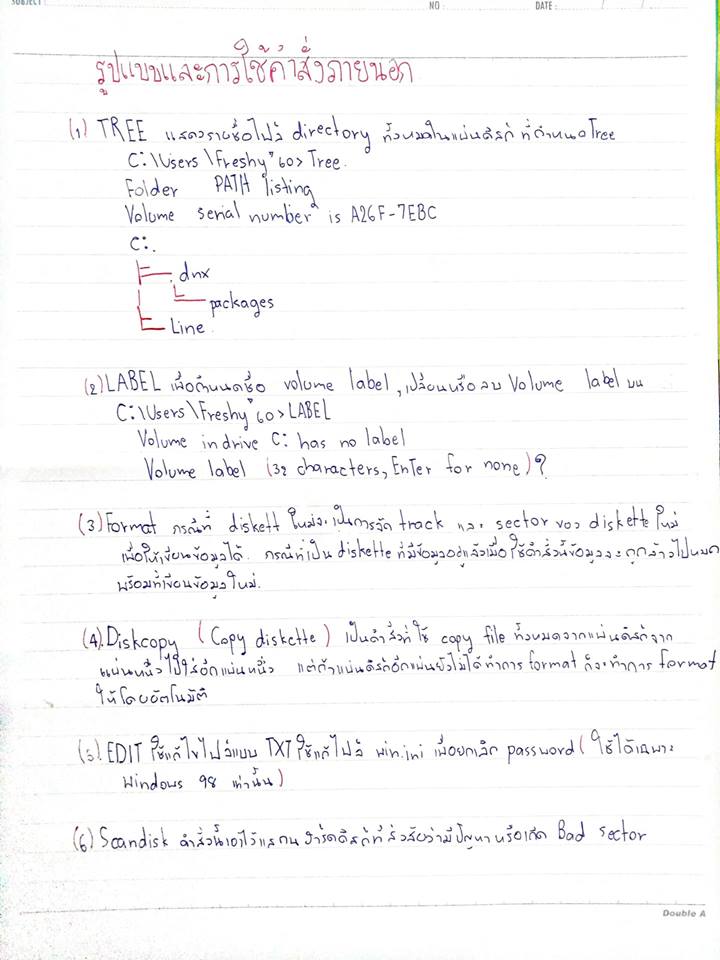 SUBJECT :
NO :
DATE :
รูปแบบและการใช้คำสั่งภายนอก
(1) TREE แสดงรายชื่อไฟล์ directory ทั้งหมดในแผ่นดิสก์ ที่กำหนด Tree
C:\Users\Freshy"60>Tree.
Folder PATH listing
Volume serial number is A26F-7EBC
C:.
dnx
packages
Line
(2) LABEL เพื่อกำหนดชื่อ volume label, เปลี่ยนหรือลบ Volume label บน
C:\Users\Freshy"60>LABEL
Volume in drive C: has no label
Volume label (32 characters, EnTer for none)?
(3) Format กรณีที่ diskett ใหม่จะเป็นการจัด track และ sector ของ diskette ใหม่
เพื่อให้เขียนข้อมูลได้. กรณีที่เป็น diskette ที่มีข้อมูลอยู่แล้วเมื่อใช้คำสั่งนี้ข้อมูลจะถูกล้างไปหมด
พร้อมที่เขียนข้อมูลใหม่.
(4). Diskcopy (Copy diskette) เป็นคำสั่งที่ใช้ copy file ทั้งหมดจากแผ่นดิสก์จาก
แผ่นหนึ่งไปใส่อีกแผ่นหนึ่ง แต่ถ้าแผ่นดิสก์อีกแผ่นยังไม่ได้ทำการ format ก็จะทำการ format
ให้โดยอัตโนมัติ
(5). EDIT ใช้แก้ไขไฟล์แบบ TXT ใช้แก้ไฟล์ win.ini เพื่อยกเลิก password (ใช้ได้เฉพาะ
Windows 98 เท่านั้น)
(6) Scandisk คำสั่งนี้เอาไว้แสกน ฮาร์ดดิสก์ที่สงสัยว่ามีปัญหาหรือเกิด Bad sector
Double A